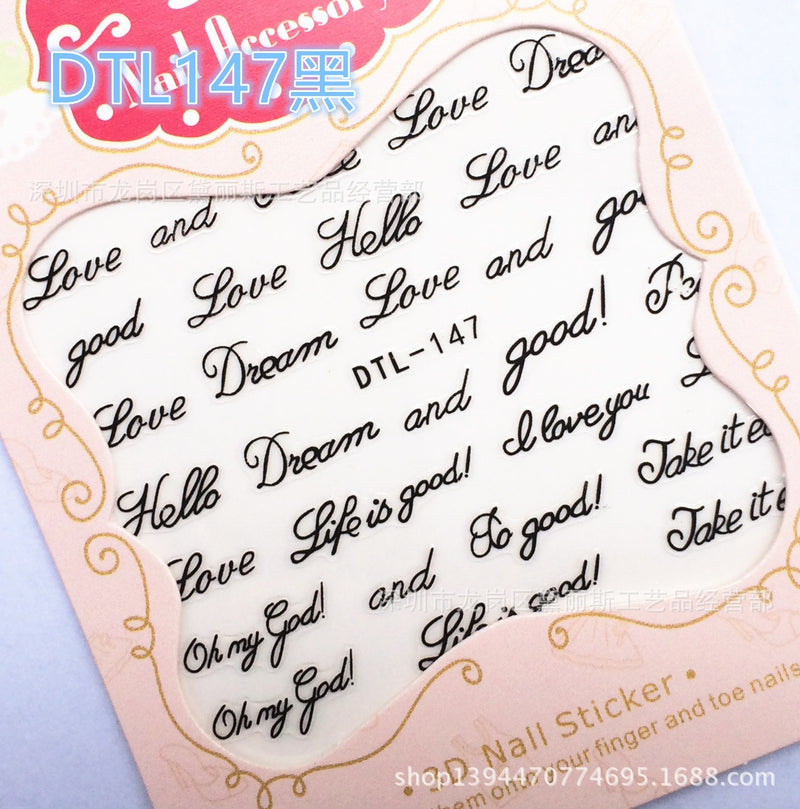 Nail Accessory
DTL147黑
Love Drea
深圳市龙岗区黛丽斯工艺品经营部
Love and Love an
good Love Hello
Love Dream Love and go
DTL-147
Hello Dream and good! Pe
Love Life is good! I love you
Oh my God! and So good! Take it ea
Oh my God! Life is good! Take it e
深圳市龙岗区黛丽斯工艺品经营部
3D Nail Sticker
them onto your finger and toe nails
shop1394470774695.1688.com